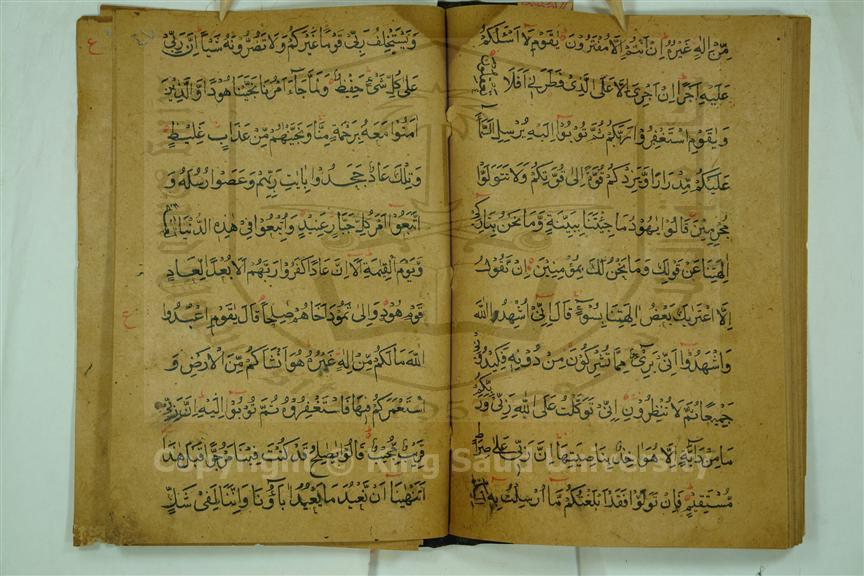 مِّنْ اِلٰهٍ غَيْرُهٗ اِنْ اَنْتُمْ اِلَّا مُفْتَرُوْنَ يٰقَوْمِ لَا اَسْـَٔلُكُمْ
عَلَيْهِ اَجْرًا اِنْ اَجْرِىَ اِلَّا عَلَى الَّذِىْ فَطَرَنِىْ اَفَلَا تَعْقِلُوْنَ
وَيٰقَوْمِ اسْتَغْفِرُوْا رَبَّكُمْ ثُمَّ تُوْبُوْا اِلَيْهِ يُرْسِلِ السَّمَآءَ
عَلَيْكُمْ مِّدْرَارًا وَّيَزِدْكُمْ قُوَّةً اِلٰى قُوَّتِكُمْ وَلَا تَتَوَلَّوْا
مُجْرِمِيْنَ قَالُوْا يٰهُوْدُ مَا جِئْتَنَا بِبَيِّنَةٍ وَّمَا نَحْنُ بِتَارِكِىْ
اٰلِهَتِنَا عَنْ قَوْلِكَ وَمَا نَحْنُ لَكَ بِمُؤْمِنِيْنَ اِنْ نَّقُوْلُ
اِلَّا اعْتَرٰىكَ بَعْضُ اٰلِهَتِنَا بِسُوْٓءٍ قَالَ اِنِّىْ اُشْهِدُ اللّٰهَ
وَاشْهَدُوْا اَنِّىْ بَرِىْٓءٌ مِّمَّا تُشْرِكُوْنَ مِنْ دُوْنِهٖ فَكِيْدُوْنِىْ
جَمِيْعًا ثُمَّ لَا تُنْظِرُوْنِ اِنِّىْ تَوَكَّلْتُ عَلَى اللّٰهِ رَبِّىْ وَرَبِّكُمْ
مَا مِنْ دَآبَّةٍ اِلَّا هُوَ اٰخِذٌ بِنَاصِيَتِهَا اِنَّ رَبِّىْ عَلٰى صِرَاطٍ
مُّسْتَقِيْمٍ فَاِنْ تَوَلَّوْا فَقَدْ اَبْلَغْتُكُمْ مَّا اُرْسِلْتُ بِهٖ اِلَيْكُمْ
وَيَسْتَخْلِفُ رَبِّىْ قَوْمًا غَيْرَكُمْ وَلَا تَضُرُّوْنَهٗ شَيْـًٔا اِنَّ رَبِّىْ
عَلٰى كُلِّ شَىْءٍ حَفِيْظٌ وَلَمَّا جَآءَ اَمْرُنَا نَجَّيْنَا هُوْدًا وَّالَّذِيْنَ
اٰمَنُوْا مَعَهٗ بِرَحْمَةٍ مِّنَّا وَنَجَّيْنٰهُمْ مِّنْ عَذَابٍ غَلِيْظٍ
وَتِلْكَ عَادٌ جَحَدُوْا بِاٰيٰتِ رَبِّهِمْ وَعَصَوْا رُسُلَهٗ وَ
اتَّبَعُوْا اَمْرَ كُلِّ جَبَّارٍ عَنِيْدٍ وَاُتْبِعُوْا فِىْ هٰذِهِ الدُّنْيَا لَعْنَةً
وَّيَوْمَ الْقِيٰمَةِ اَلَا اِنَّ عَادًا كَفَرُوْا رَبَّهُمْ اَلَا بُعْدًا لِّعَادٍ
قَوْمِ هُوْدٍ وَاِلٰى ثَمُوْدَ اَخَاهُمْ صٰلِحًا قَالَ يٰقَوْمِ اعْبُدُوا
اللّٰهَ مَا لَكُمْ مِّنْ اِلٰهٍ غَيْرُهٗ هُوَ اَنْشَاَكُمْ مِّنَ الْاَرْضِ وَ
اسْتَعْمَرَكُمْ فِيْهَا فَاسْتَغْفِرُوْهُ ثُمَّ تُوْبُوْا اِلَيْهِ اِنَّ رَبِّىْ
قَرِيْبٌ مُّجِيْبٌ قَالُوْا يٰصٰلِحُ قَدْ كُنْتَ فِيْنَا مَرْجُوًّا قَبْلَ هٰذَا
اَتَنْهٰىنَا اَنْ نَّعْبُدَ مَا يَعْبُدُ اٰبَآؤُنَا وَاِنَّنَا لَفِىْ شَكٍّ
Copyright © King Saud University